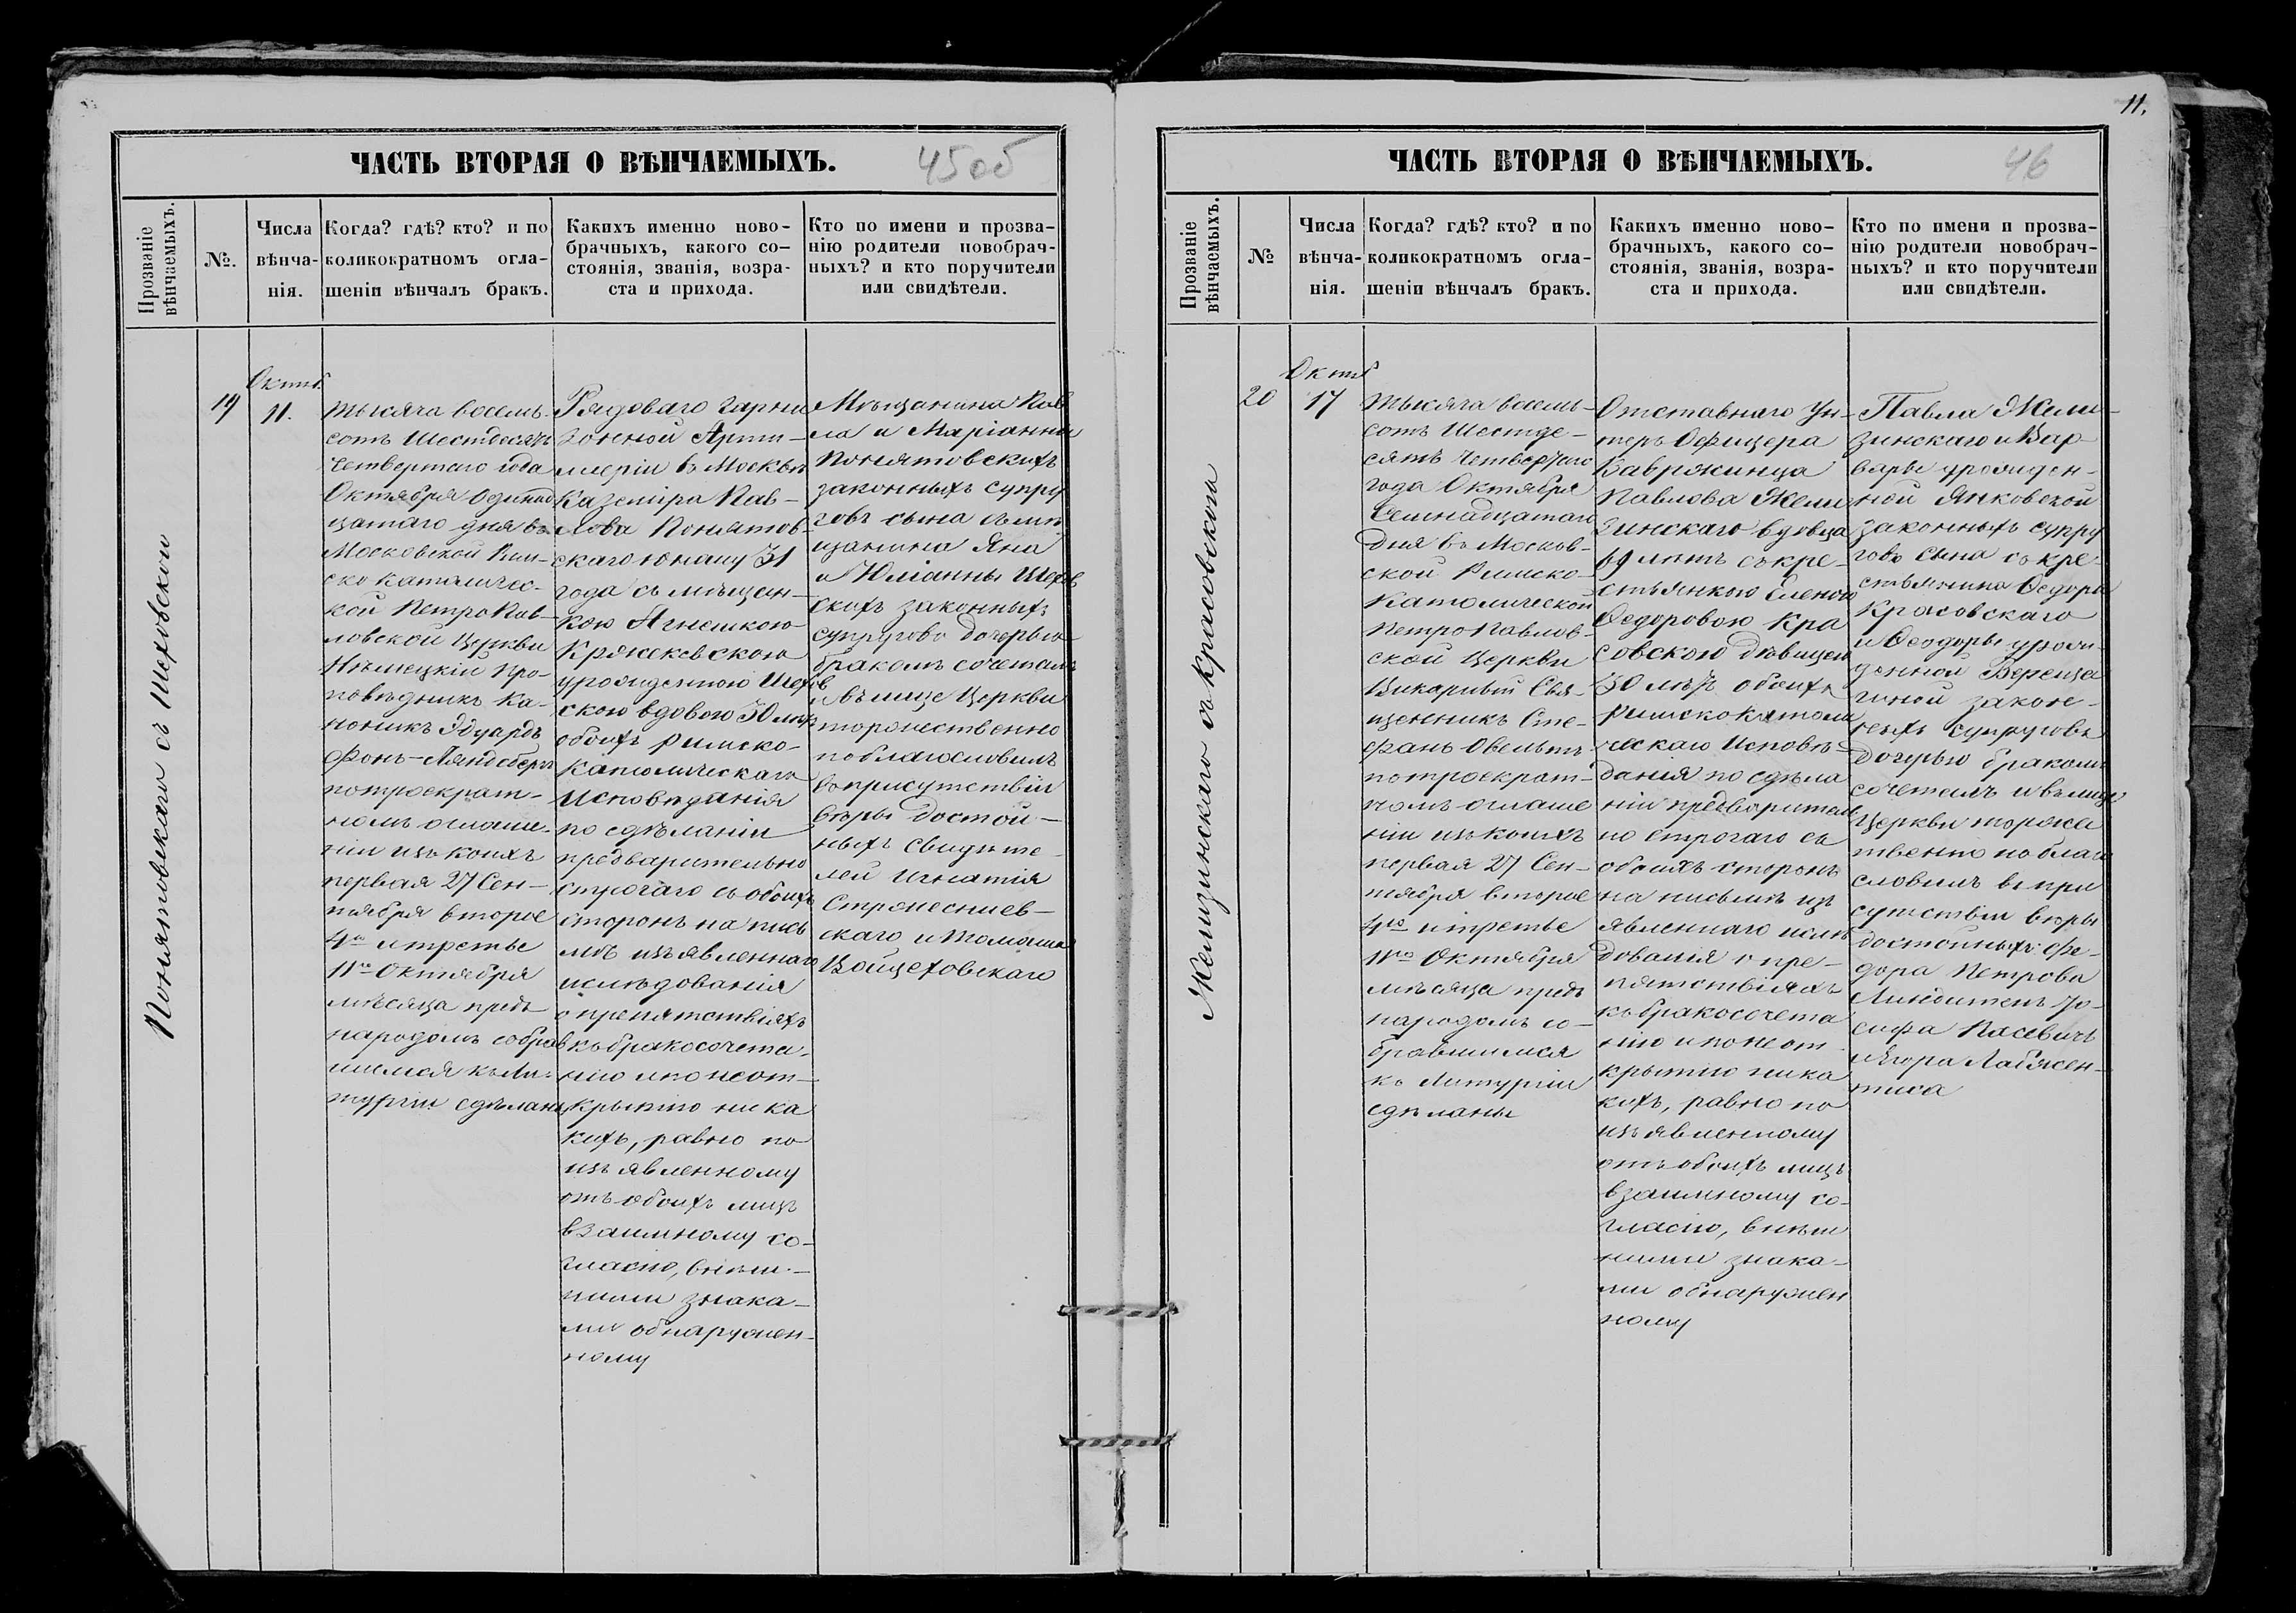 11.
ЧАСТЬ ВТОРАЯ О ВѢНЧАЕМЫХЪ.
45 об
Прозваніе вѣнчаемыхъ.
№.
Числа вѣнча-нія.
Когда? гдѣ? кто? и по
коликократномъ огла-
шеніи вѣнчалъ бракъ.
Какихъ именно ново-
брачныхъ, какого со-
стоянія, званія, возра-
ста и прихода.
Кто по имени и прозва-
нію родители новобрач-
ныхъ? и кто поручители
или свидѣтели.
Понятовскаго съ Шеховскою
19
Октяб.
11.
Тысяча восемь-
сотъ Шестдесятъ
Четвертаго года
Октября Одинна
цатаго дня въ
Московской Рим-
ско Католичес-
кой Петро Пав-
ловской Церкви
Нѣмецкій Про-
повѣдникъ Ка-
ноникъ Эдуардъ
Фонъ-Ляндсбергъ
по троекрат-
номъ оглаше-
ніи изъ коихъ
первая 27 Сен-
тября второе
4го и третье
11го Октября
мѣсяца предъ
народомъ собрав
шимся къ Ли-
тургіи сдѣланы
Рядоваго Гарни
зонной Арти-
ллеріи въ Москвѣ
Казимiра Пав-
лова Понятов-
скаго юношу 31
года съ мѣщан-
кою Агнешкою
Кржекевскою
урожденною Шехов
скою вдовою 30 лѣтъ
обоихъ Римско-
Католическаго
Исповѣданія
по сдѣланіи
предварительно
строгаго съ обоихъ
сторонъ на пись
мѣ изъявленнаго
ислѣдованія
о препятствіяхъ
къ бракосочета-
нію и по неот-
крытію ника
кихъ, равно по
изъявленному
отъ обоихъ лицъ
взаимному со-
гласію, внѣш-
ними знака-
ми обнаружен-
ному
Мѣщанина Пав
ла и Маріанны
Понятовскихъ
законныхъ супру
говъ сына съ мѣ
щанина Яна
и Юліанны Шехов
скихъ законныхъ
супруговъ дочерью
бракомъ сочеталъ
и въ лице Церкви
торжественно
поблагословилъ
въ присутствіи
вѣры достой-
ныхъ свидѣте-
лей Игнатія
Стржесниев-
скаго и Томаша
Войцеховскаго
ЧАСТЬ ВТОРАЯ О ВѢНЧАЕМЫХЪ.
46
Прозваніе вѣнчаемыхъ.
№
Числа вѣнча-нія.
Когда? гдѣ? кто? и по
коликократномъ огла-
шеніи вѣнчалъ бракъ.
Какихъ именно ново-
брачныхъ, какого со-
стоянія, званія, возра-
ста и прихода.
Кто по имени и прозва-
нію родители новобрач-
ныхъ? и кто поручители
или свидѣтели.
Желизинскаго съ Красовскою
20
Октяб
17
Тысяча восемь-
сотъ Шестде-
сятъ Четвертаго
года Октября
Семнадцатаго
дня въ Москов-
ской Римско-
Католической
Петро Павлов-
ской Церкви
Викарный Свя-
щенникъ Сте-
фанъ Овельтъ
по троекрат-
номъ оглаше
ніи изъ коихъ
первая 27 Сен-
тября второе
4го и третье
11го Октября
мѣсяца предъ
народомъ со-
бравшимся
къ Литургіи
сдѣланы
Отставнаго Ун-
теръ Офицера
Вавржинца
Павлова Жели
зинскаго вдовца
69 лѣтъ съ кре-
стьянкою Еленою
Ѳедоровою Кра
совскою дѣвицею
30 лѣтъ обоихъ
Римско Католи
ческаго Исповѣ-
данія по сдѣла
ніи предварител
но строгаго съ
обоихъ сторонъ
на письмѣ изъ
явленнаго ислѣ
дованія о пре-
пятствіяхъ
къ бракосочета
нію и по неот
крытію ника
кихъ, равно по
изъявленному
отъ обоихъ лицъ
взаимному со-
гласію, внѣш
ними знака-
ми обнаружен
ному
Павла Жели-
зинскаго и Вар-
вары урожден-
ной Янковской
законныхъ супру
говъ сына съ кре-
стьянина Ѳедора
Красовскаго
и Ѳеодоры урож-
денной Вереща
гиной закон-
ныхъ супруговъ
дочерью бракомъ
сочеталъ и въ лице
Церкви торже
ственно поблаго
словилъ въ при
сутствіи вѣры
достойныхъ: Фе-
дора Петрова
Линдитенъ Іо-
сифа Пасевичъ
и Ягора